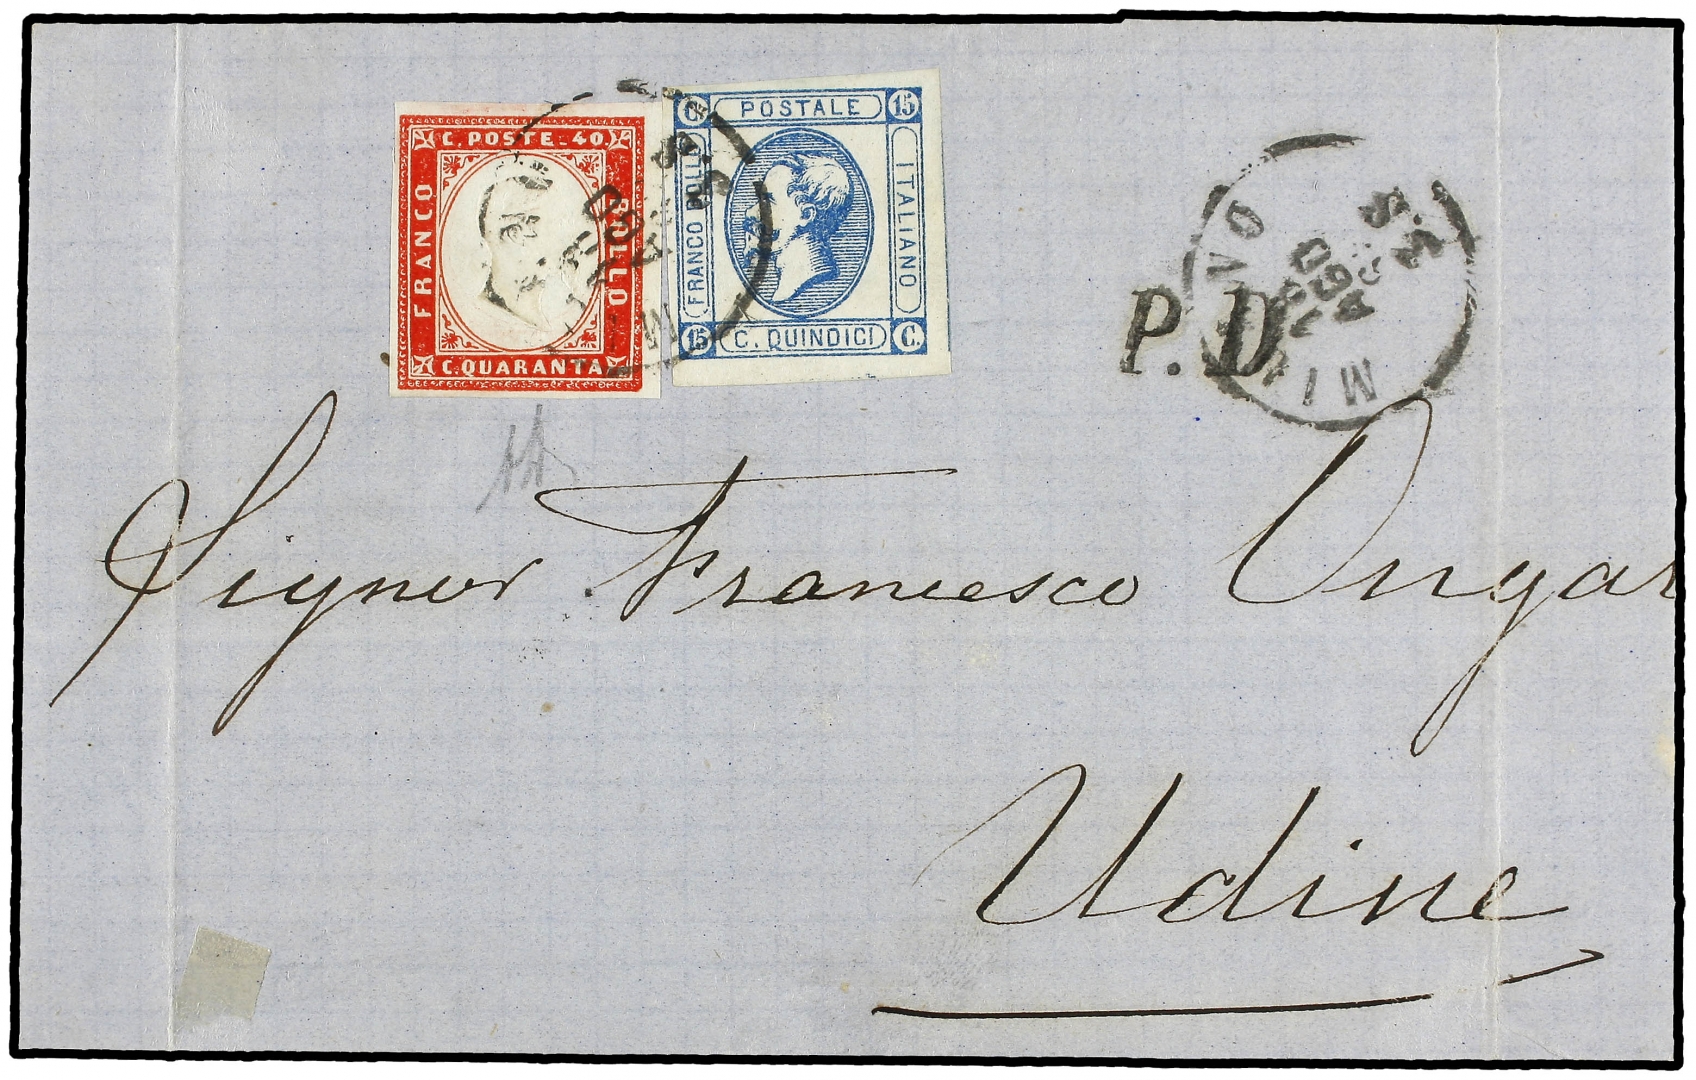 C. POSTE. 40.
FRANCO
BOLLO
C. QUARANTA
C. POSTALE 15
FRANCO BOLLO
ITALIANO
15 C. QUINDICI C.
P. D.
Signor Francesco Ungar
Udine